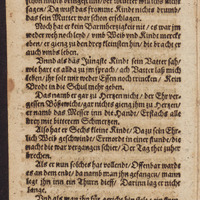 sagen / Da wust das fromme Kindlein nicht darumb /
das sein Mutter war schon erschlagen.
Noch hat er kein Barmhertzigkeit nit / es war jm
weder weh noch leyd / vnd Weib vnd Kinde
eben / er gieng zu den drey kleinsten hin / die bracht er
auch vmbs leben.
Vnnd als das Jüngste Kinde sein Vatter sah /
wie hart es allda zu jm sprach / ach Vatter laß mich
leben / ich solt nit weder Essen noch trincken / Kein
Brodt in der Schul mehr geben.
Das namb er gar zu Hertzen nicht / der Ehrver-
gessen Bößwicht / gar nichts gieng jhm zu Hertzen /
er namb das Messer inn die Handt / Erstachs alle
drey mit bitterem Schmertzen.
Als hat er Sechs kleine Kind / Dazu sein Ehr-
lich Weib geschwinde / Ermordt in einer stunde / die
nacht die war vergangen schier / Der Tag thet her
brechen.
Als er nun solches hat vollend / Offenbar wards
es an dem ende / da namb man jhn gefangen / mann
legt jhn inn ein Thurn dieff / Darinn lag er nicht
lange.